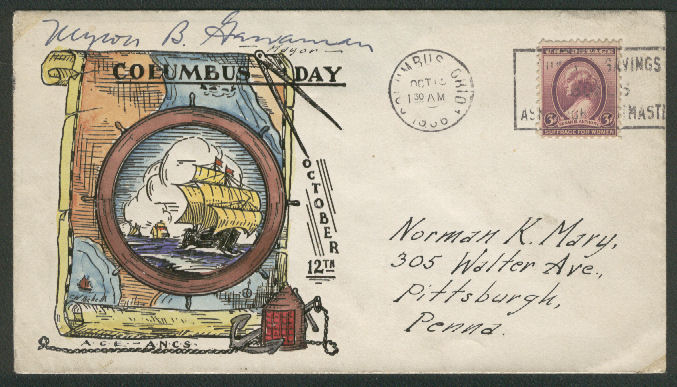 Myron B. Gessaman
Mayor
COLUMBUS DAY
OCTOBER
12TH
A·C·E·-A·N·C·S·
COLUMBUS, OHIO
OCT 12
1 30 AM
1936
SAVINGS
ASK POSTMASTER
3¢ 3¢
SUFFRAGE FOR WOMEN
Norman K. Mary,
305 Walter Ave.,
Pittsburgh,
Penna.